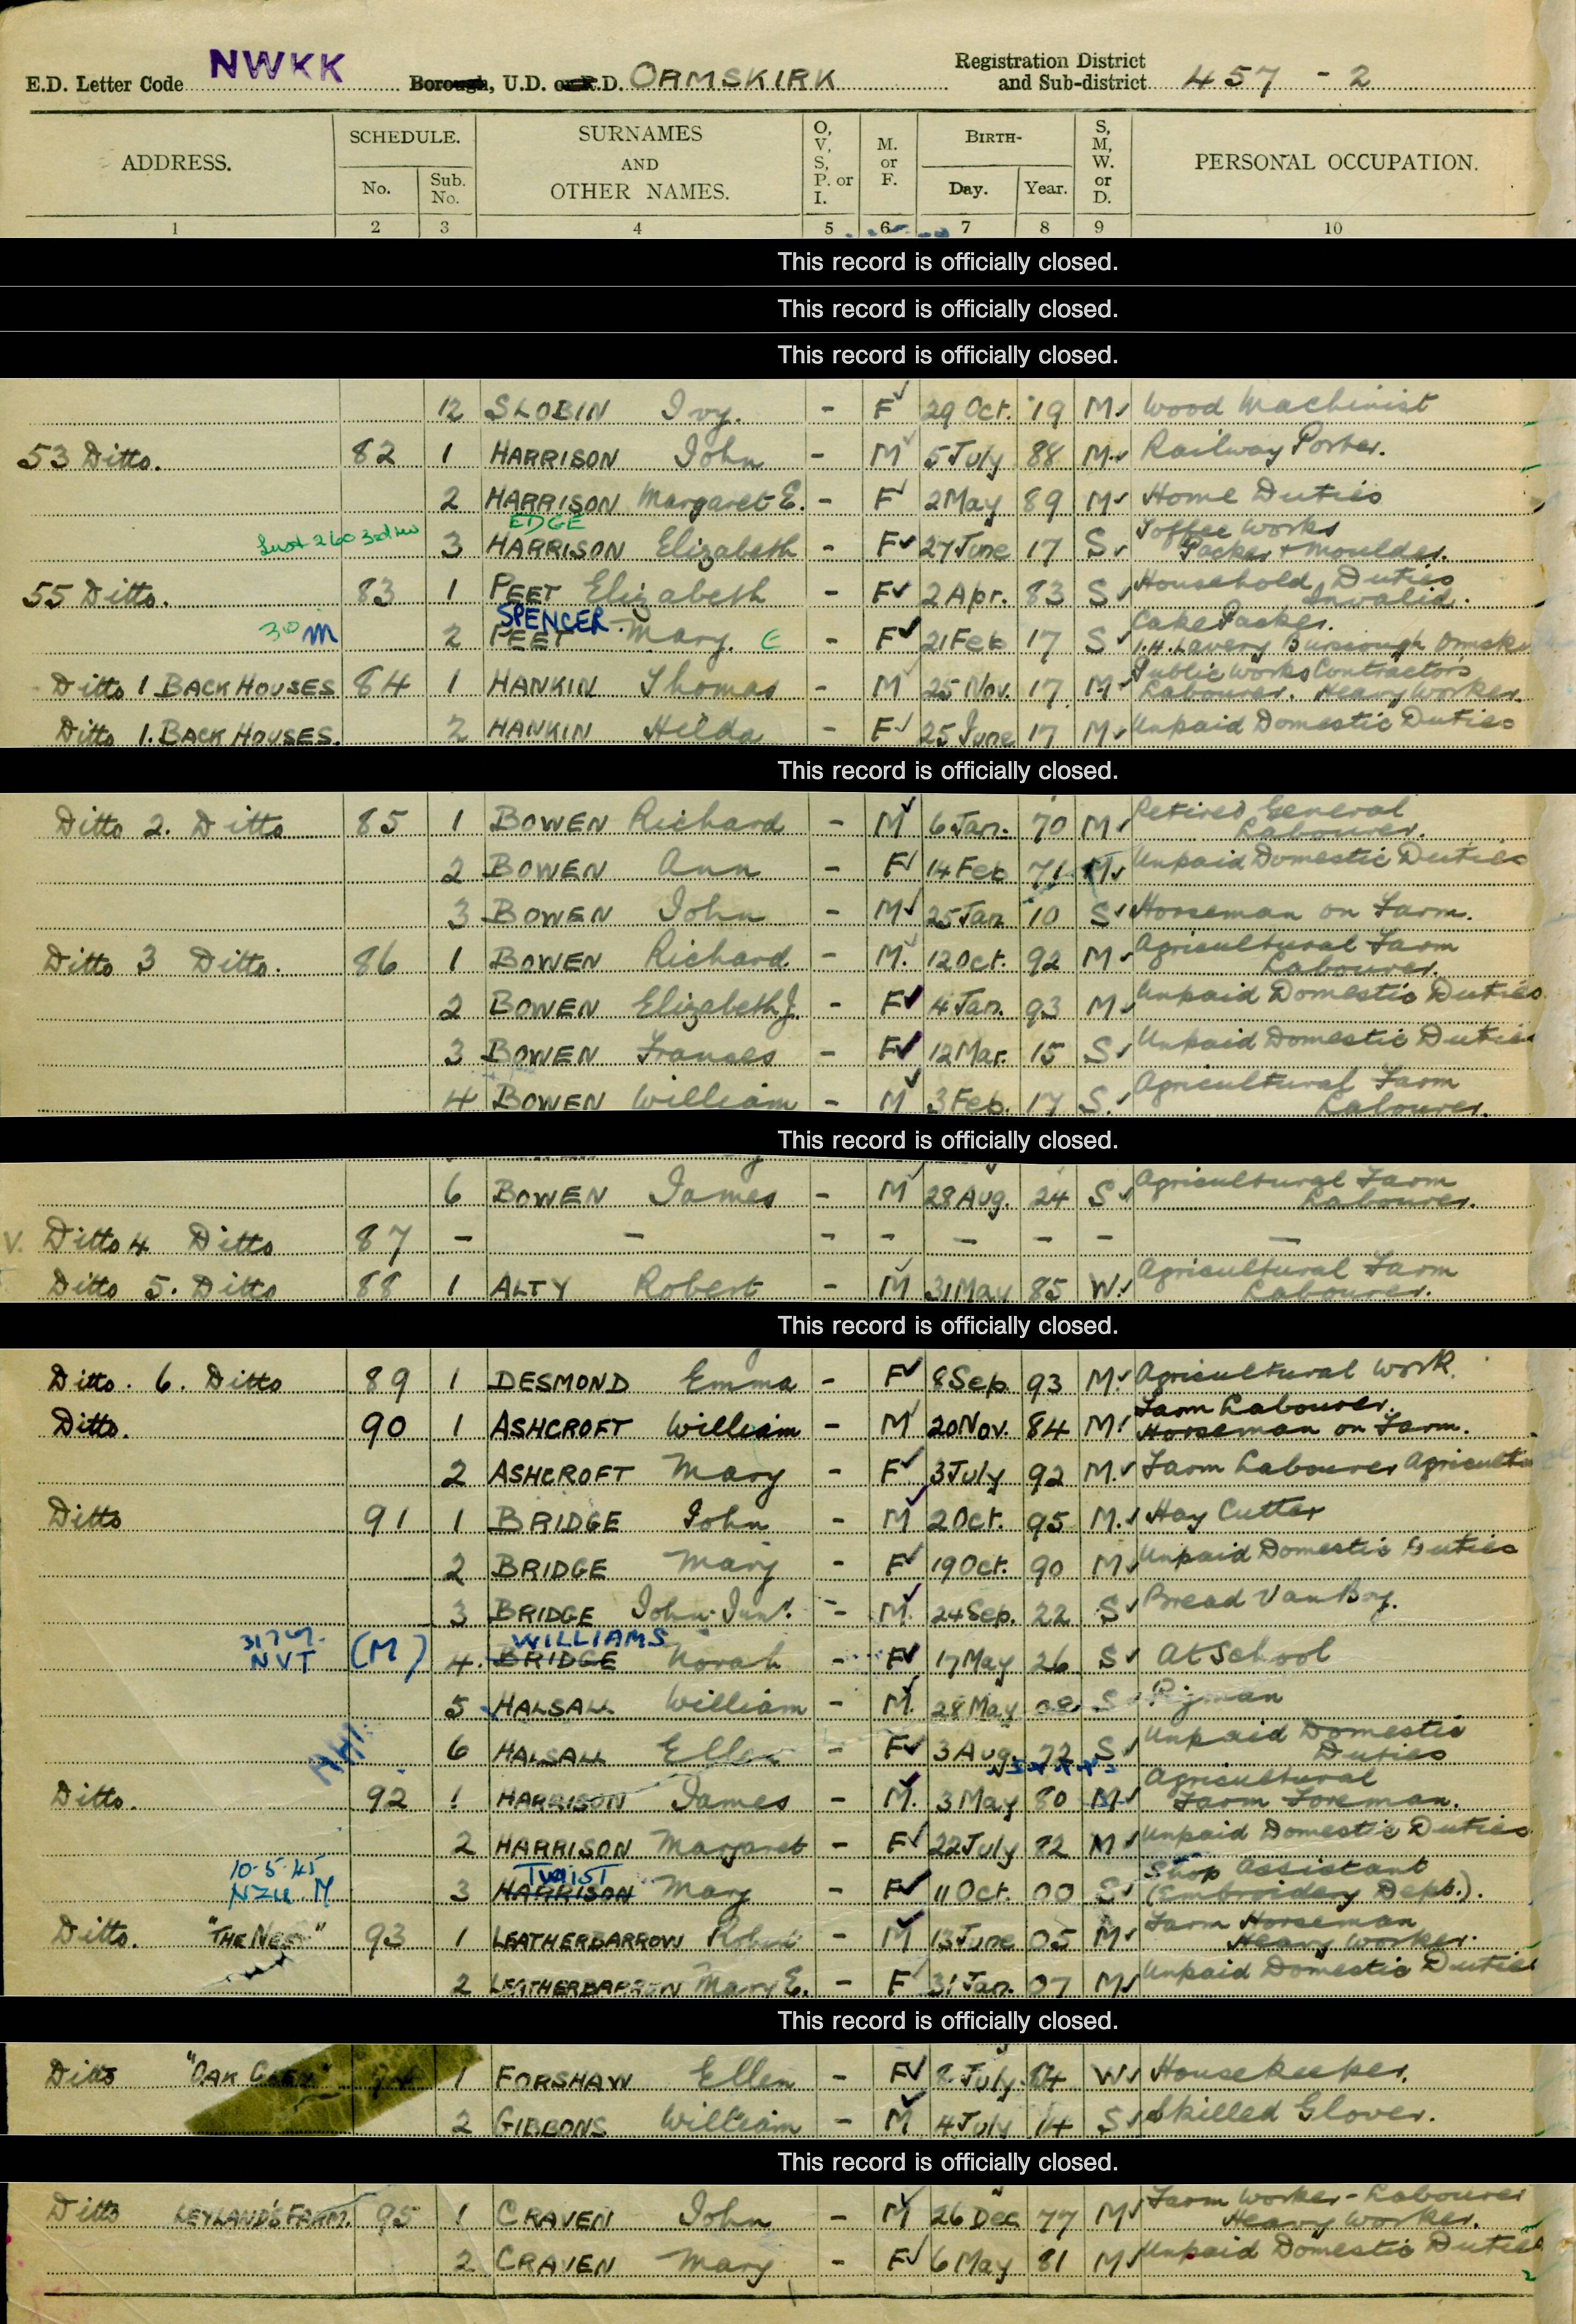 E.D. Letter Code NWKK Borough, U.D. or R.D. ORMSKIRK Registration District and Sub-district 457 - 2
ADDRESS. SCHEDULE. No. Sub. No. SURNAMES AND OTHER NAMES. O, V, S, P. or I. M. or F. BIRTH- Day. Year. S, M, W. or D. PERSONAL OCCUPATION.
1 2 3 4 5 6 7 8 9 10
This record is officially closed.
This record is officially closed.
This record is officially closed.
12 SLOBIN Ivy. - F 29 Oct. 19 M Wood Machinist
53 Ditto. 82 1 HARRISON John - M 5 July 88 M Railway Porter.
2 HARRISON Margaret E. - F 2 May 89 M Home Duties
EDGE
3 HARRISON Elizabeth - F 27 June 17 S Toffee Works Packer & Moulder.
55 Ditto. 83 1 PEET Elizabeth - F 2 Apr. 83 S Household Duties Invalid.
SPENCER
30 m 2 PEET Mary. E - F 21 Feb 17 S Cake Packer. Lavery Burscough
Ditto 1 BACK HOUSES 84 1 HANKIN Thomas - M 25 Nov. 17 M Public Works Contractors Labourer. Heavy Worker.
Ditto 1. BACK HOUSES. 2 HANKIN Hilda - F 25 June 17 M Unpaid Domestic Duties
This record is officially closed.
Ditto 2. Ditto 85 1 BOWEN Richard - M 6 Jan. 70 M Retired General Labourer.
2 BOWEN Ann - F 14 Feb 71 M Unpaid Domestic Duties
3 BOWEN John - M 25 Jan 10 S Horseman on Farm.
Ditto 3 Ditto. 86 1 BOWEN Richard. - M. 12 Oct. 92 M Agricultural Farm Labourer.
2 BOWEN Elizabeth J. - F 4 Jan. 93 M Unpaid Domestic Duties
3 BOWEN Frances - F 12 Mar. 15 S Unpaid Domestic Duties
4 BOWEN William - M 3 Feb. 17 S. Agricultural Farm Labourer.
This record is officially closed.
6 BOWEN James - M 28 Aug. 24 S Agricultural Farm Labourer.
V. Ditto 4 Ditto 87 - - - - - - - -
Ditto 5. Ditto 88 1 ALTY Robert - M 31 May 85 W. Agricultural Farm Labourer.
This record is officially closed.
Ditto. 6. Ditto 89 1 DESMOND Emma - F 8 Sep 93 M. Agricultural Work.
Ditto. 90 1 ASHCROFT William - M 20 Nov. 84 M Farm Labourer. Horseman on Farm.
2 ASHCROFT Mary - F 3 July 92 M. Farm Labourer
Ditto 91 1 BRIDGE John - M 2 Oct. 95 M. Hay Cutter
2 BRIDGE Mary - F 19 Oct. 90 M Unpaid Domestic Duties
3 BRIDGE John Junr. - M. 24 Sep. 22 S Bread Van Boy.
WILLIAMS
NVT (M) 4. BRIDGE Norah - F 17 May 26 S At School
5 HALSALL William - M. 28 May S
6 HALSALL Ellen - F 3 Aug. 72 S Unpaid Domestic Duties
Ditto. 92 1 HARRISON James - M. 3 May 80 M Agricultural Farm Foreman.
2 HARRISON Margaret - F 22 July 82 M Unpaid Domestic Duties
10-5-45 TWIST
M 3 HARRISON Mary - F 11 Oct. 00 S Shop Assistant (Embroidery Dept.).
Ditto. "THE NEST" 93 1 LEATHERBARROW Robert - M 13 June 05 M Farm Horseman Heavy Worker.
2 LEATHERBARROW Mary E. - F 31 Jan. 07 M Unpaid Domestic Duties
This record is officially closed.
Ditto "OAK 94 1 FORSHAW Ellen - F July 84 W Housekeeper.
2 GIBBONS William - M 4 July 14 S Skilled Glover.
This record is officially closed.
Ditto LEYLAND'S FARM. 95 1 CRAVEN John - M 26 Dec 77 M Farm Worker - Labourer Heavy Worker.
2 CRAVEN Mary - F 6 May 81 M Unpaid Domestic Duties